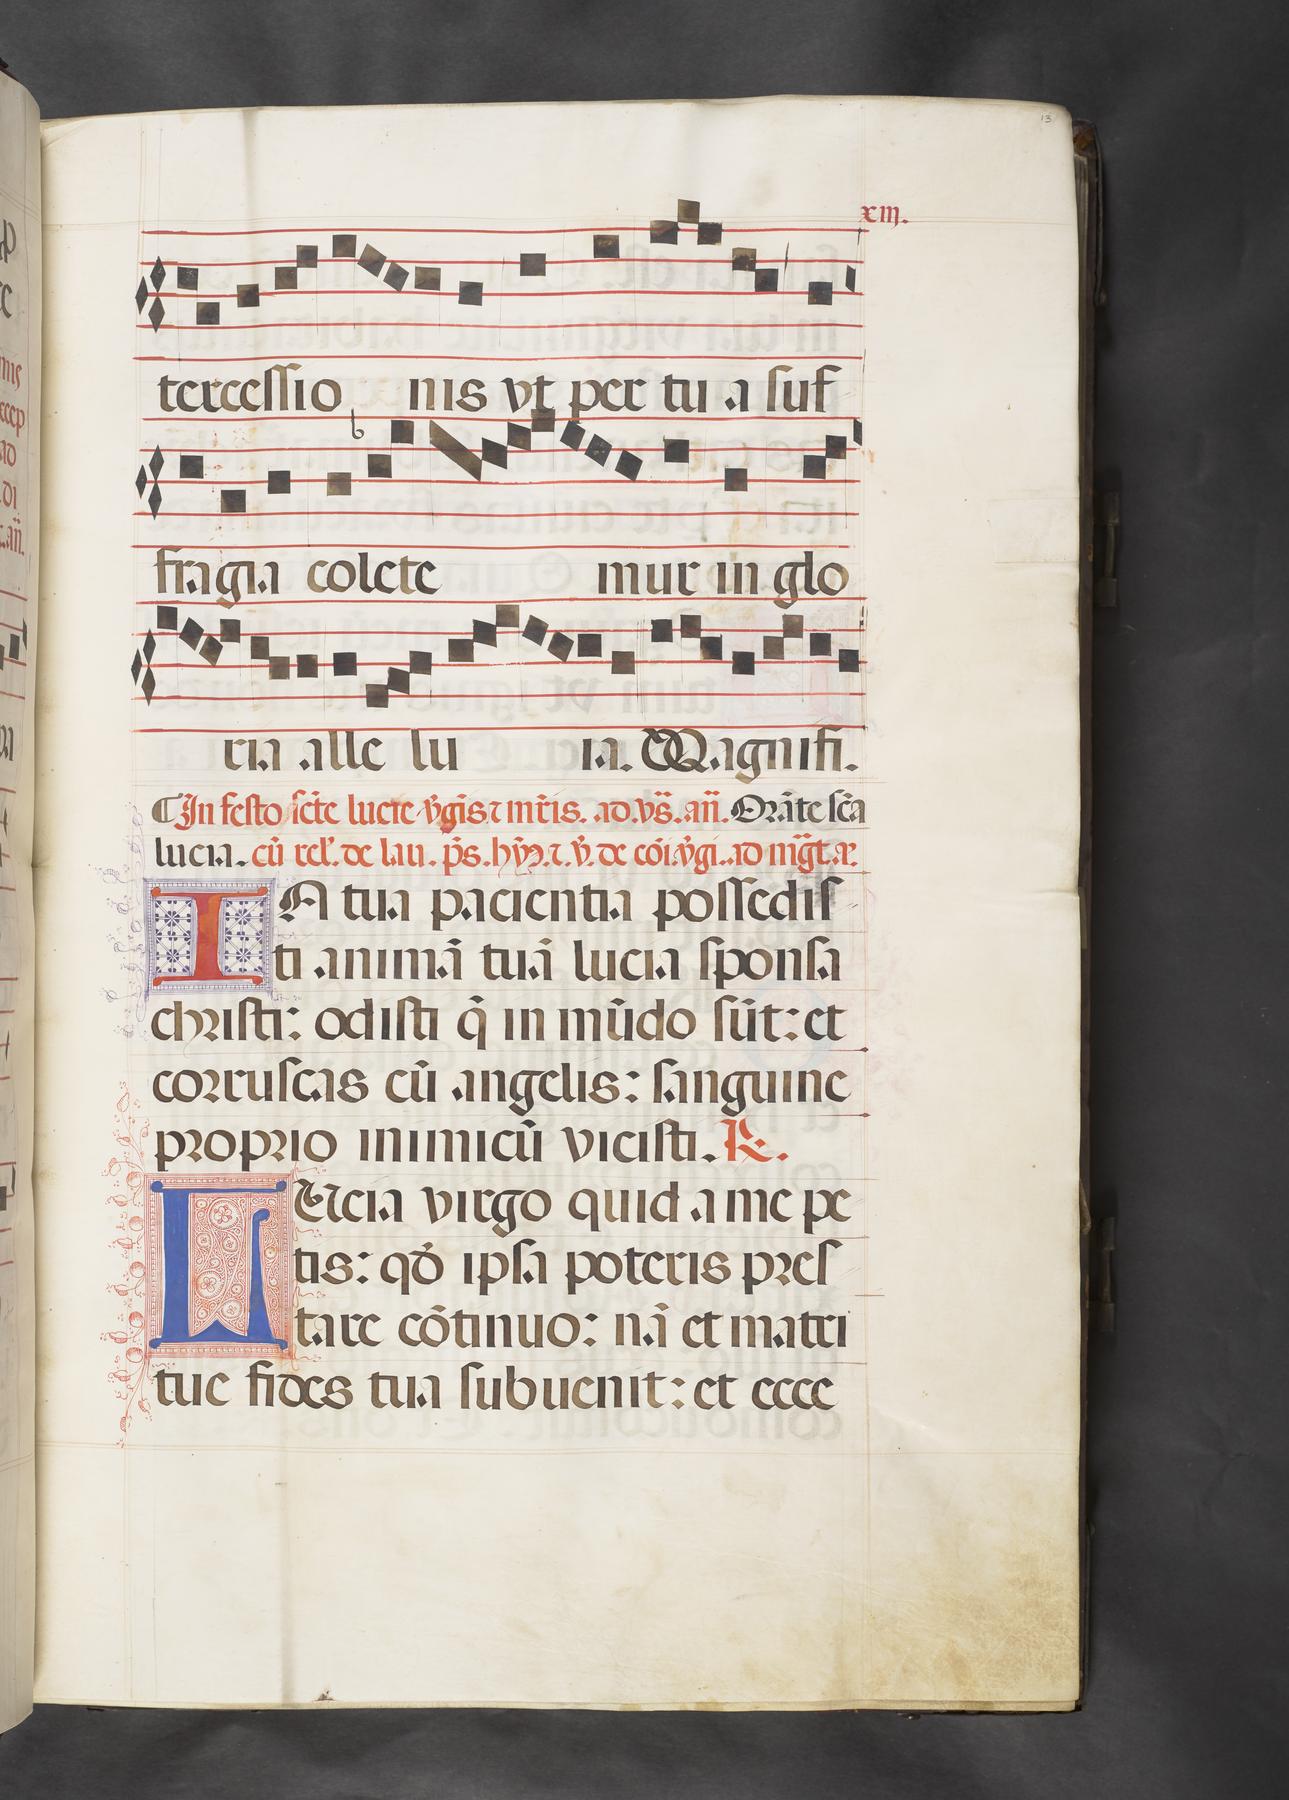 13
xiij.
tercessio nis vt per tu a suf
fragia colete mur in glo
ria alle lu ia. Magnifi.
¶In festo sc̄te lucie v̄gis ⁊ mr̄is. ad. vs̄. an̄. Orāte sc̄a
lucia. cū rel'. de lau. ps̄. hyỹ. ⁊. v̄. de cōi. v̄gi. ad mḡt. a.
IN tua paciencia possedis
ti animā tuā lucia sponsa
christi: odisti q̄ in mūdo sūt: et
corruscas cū angelis: sanguine
proprio inimicū vicisti. ℟.
LUcia virgo quid a me pe
tis: qđ ipsa poteris pres
tare cōtinuo: nā et matri
tue fides tua subuenit: et ecce